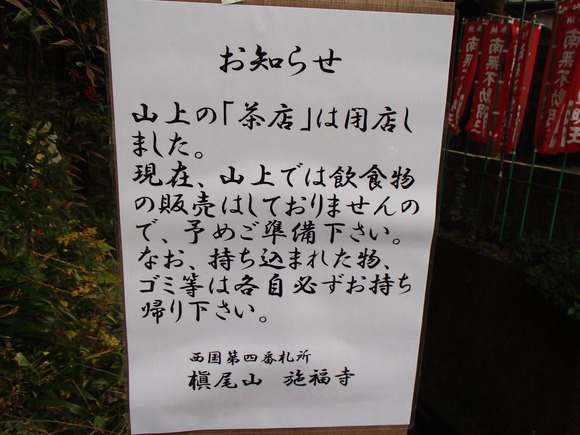 お知らせ
山上の「茶店」は閉店し
ました。
現在、山上では飲食物
の販売はしておりませんの
で、予めご準備下さい。
なお、持ち込まれた物、
ゴミ等は各自必ずお持ち
帰り下さい。
西国第四番札所
槇尾山 施福寺
南無不動明王